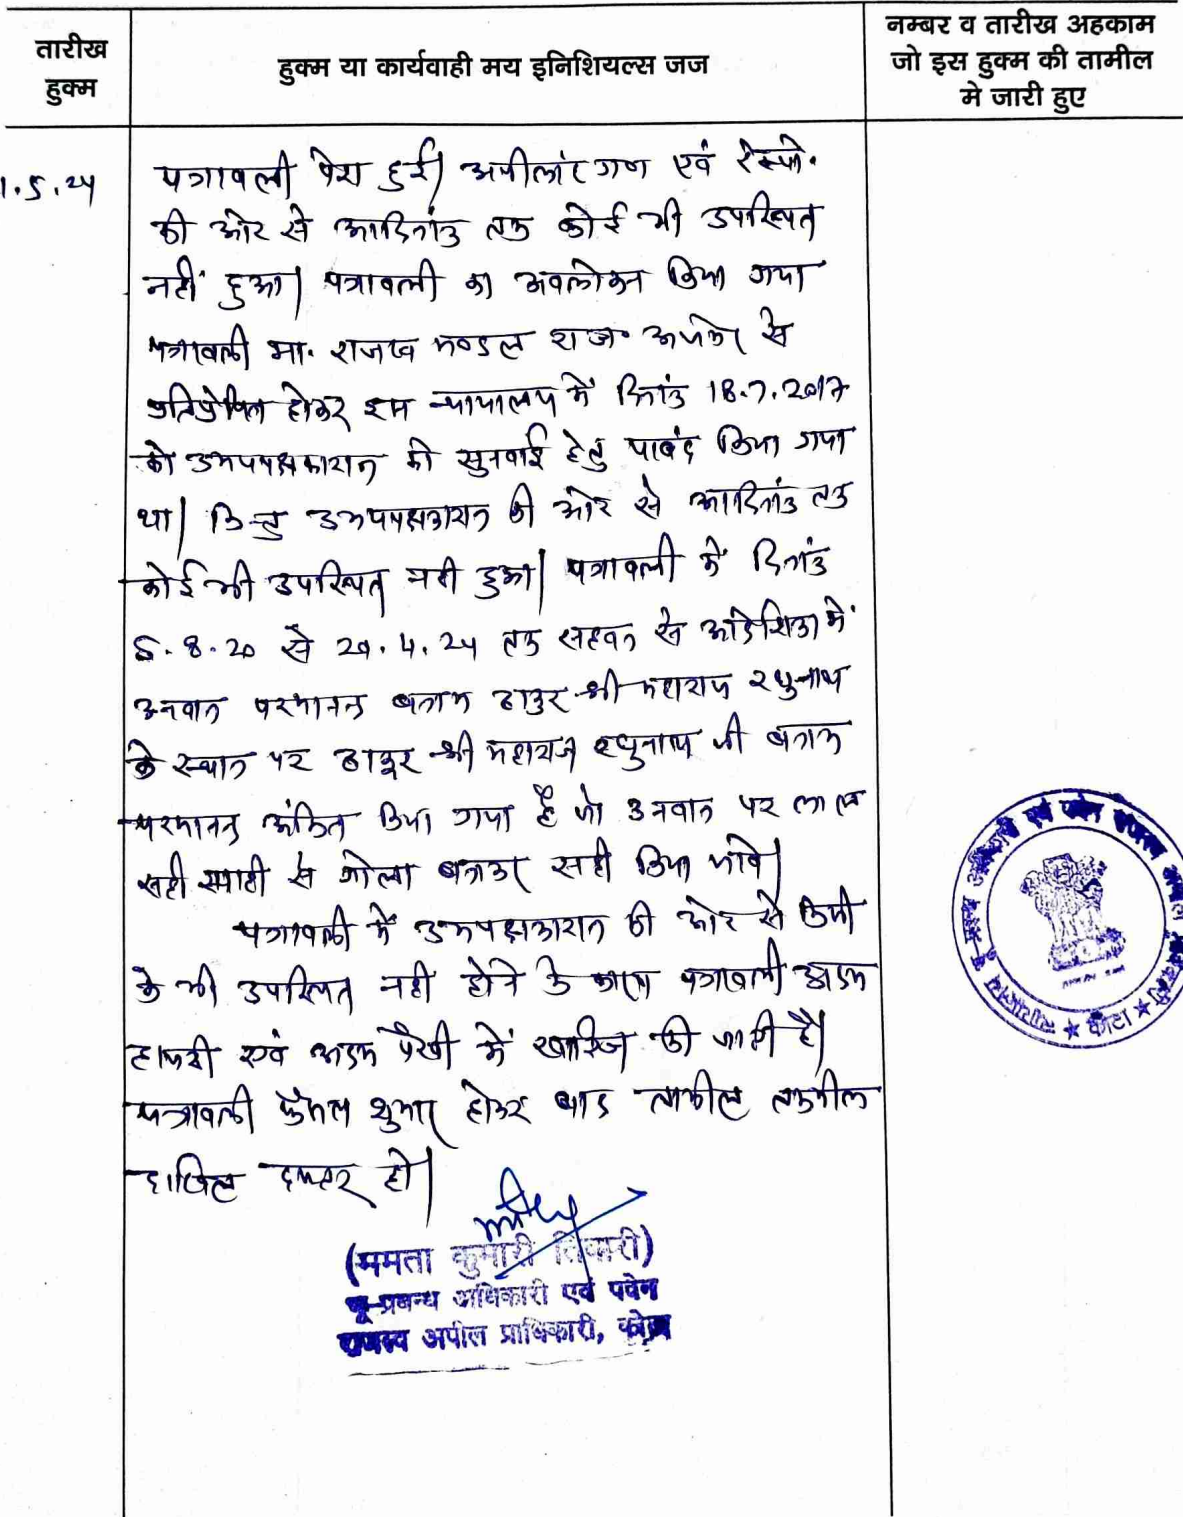 तारीख
हुक्म
हुक्म या कार्यवाही मय इनिशियल्स जज
नम्बर व तारीख अहकाम
जो इस हुक्म की तामील
मे जारी हुए
1.5.24
पत्रावली पेश हुई। अपीलांट गण एवं रेस्पो.
की ओर से आदिनांक तक कोई भी उपस्थित
नहीं हुआ। पत्रावली का अवलोकन किया गया
पत्रावली मा. राजस्व मण्डल राज. अजमेर से
प्रतिप्रेषित होकर इस न्यायालय में दिनांक 18.7.2017
को उभयपक्षकारान की सुनवाई हेतु पाबंद किया गया
था। किन्तु उभयपक्षकारान की ओर से आदिनांक तक
कोई भी उपस्थित नही हुआ। पत्रावली में दिनांक
5.8.20 से 29.4.24 तक सहवन से आदेशिका में
उनवान परमानन्द बनाम ठाकुर श्री महाराज रघुनाथ
के स्थान पर ठाकुर श्री महाराज रघुनाथ जी बनाम
परमानन्द अंकित किया गया है जो उनवान पर लाल
स्याही से गोला बनाकर सही किया जावे।
पत्रावली में उभयपक्षकारान की ओर से किसी
के भी उपस्थित नही होने के कारण पत्रावली अदम
हाजरी एवं अदम पैरवी में खारिज की जाती है।
पत्रावली फैसल शुमार होकर बाद तामील तकमील
दाखिल दफ्तर हो।
(ममता कुमारी तिवारी)
भू-प्रबन्ध अधिकारी एवं पदेन
राजस्व अपील प्राधिकारी, कोटा
न्यायालय भू-प्रबन्ध अधिकारी एवं पदेन राजस्व अपील प्राधिकारी ★ कोटा ★